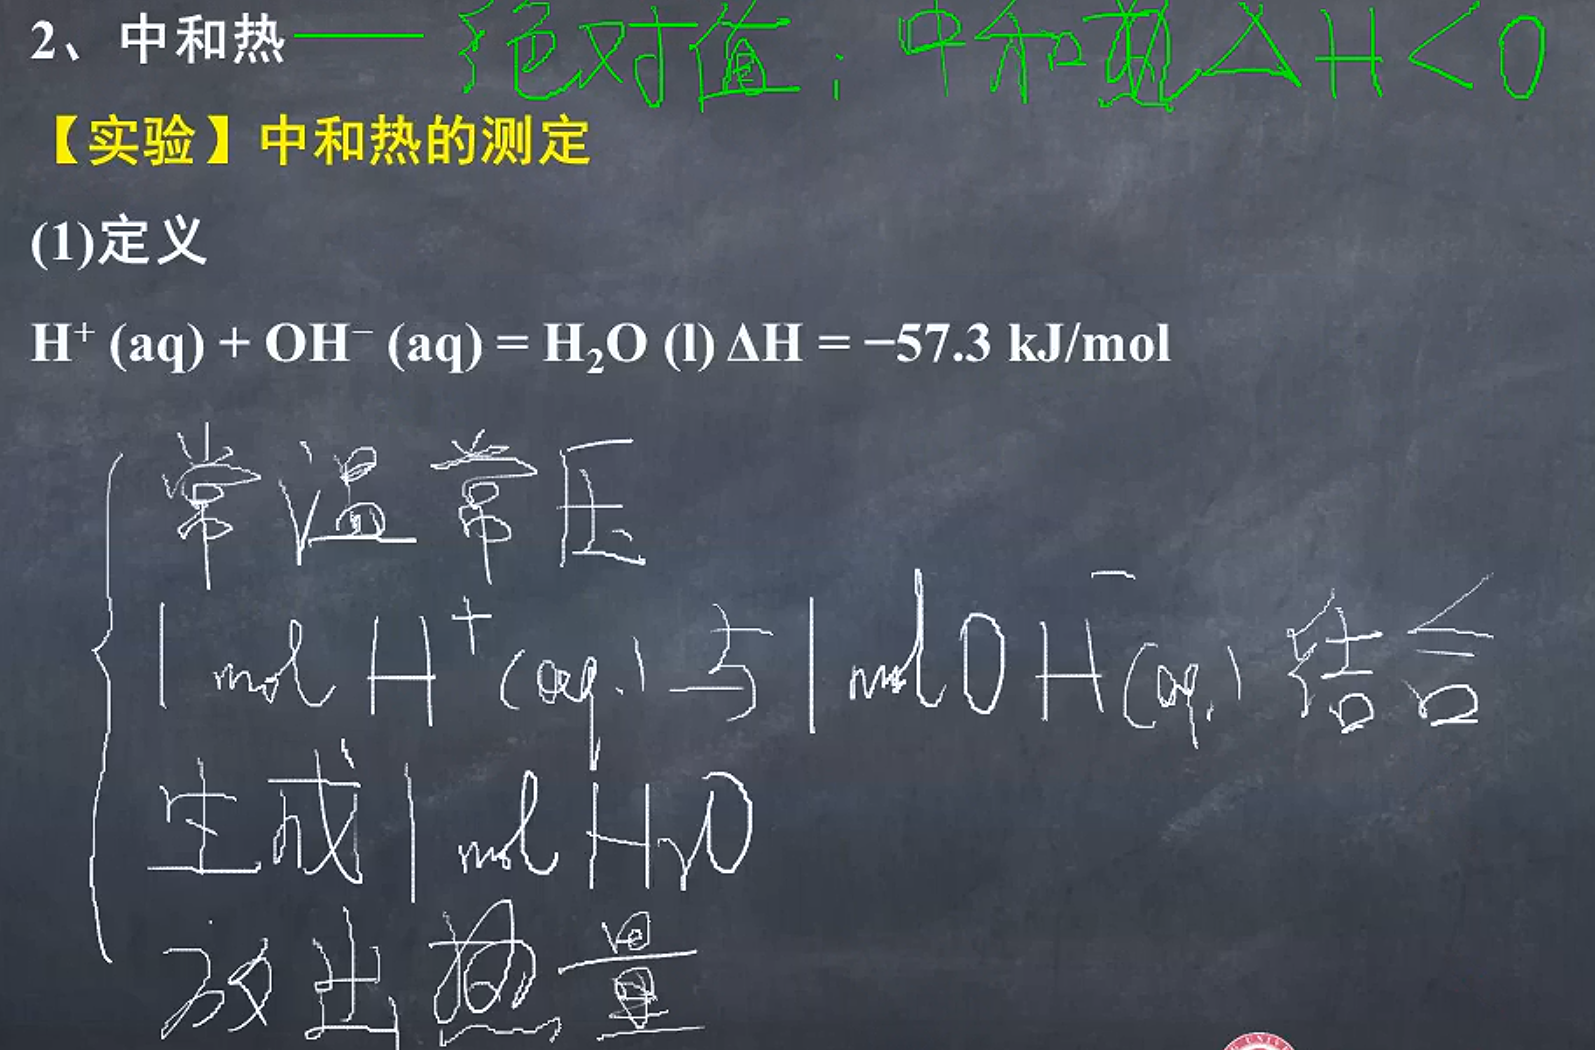 2、中和热——绝对值；中和热△H<0
【实验】中和热的测定
(1)定义
H⁺ (aq) + OH⁻ (aq) = H₂O (l) ΔH = −57.3 kJ/mol
常温常压
1mol H⁺(aq.)与1molOH⁻(aq.)结合
生成1molH₂O
放出热量